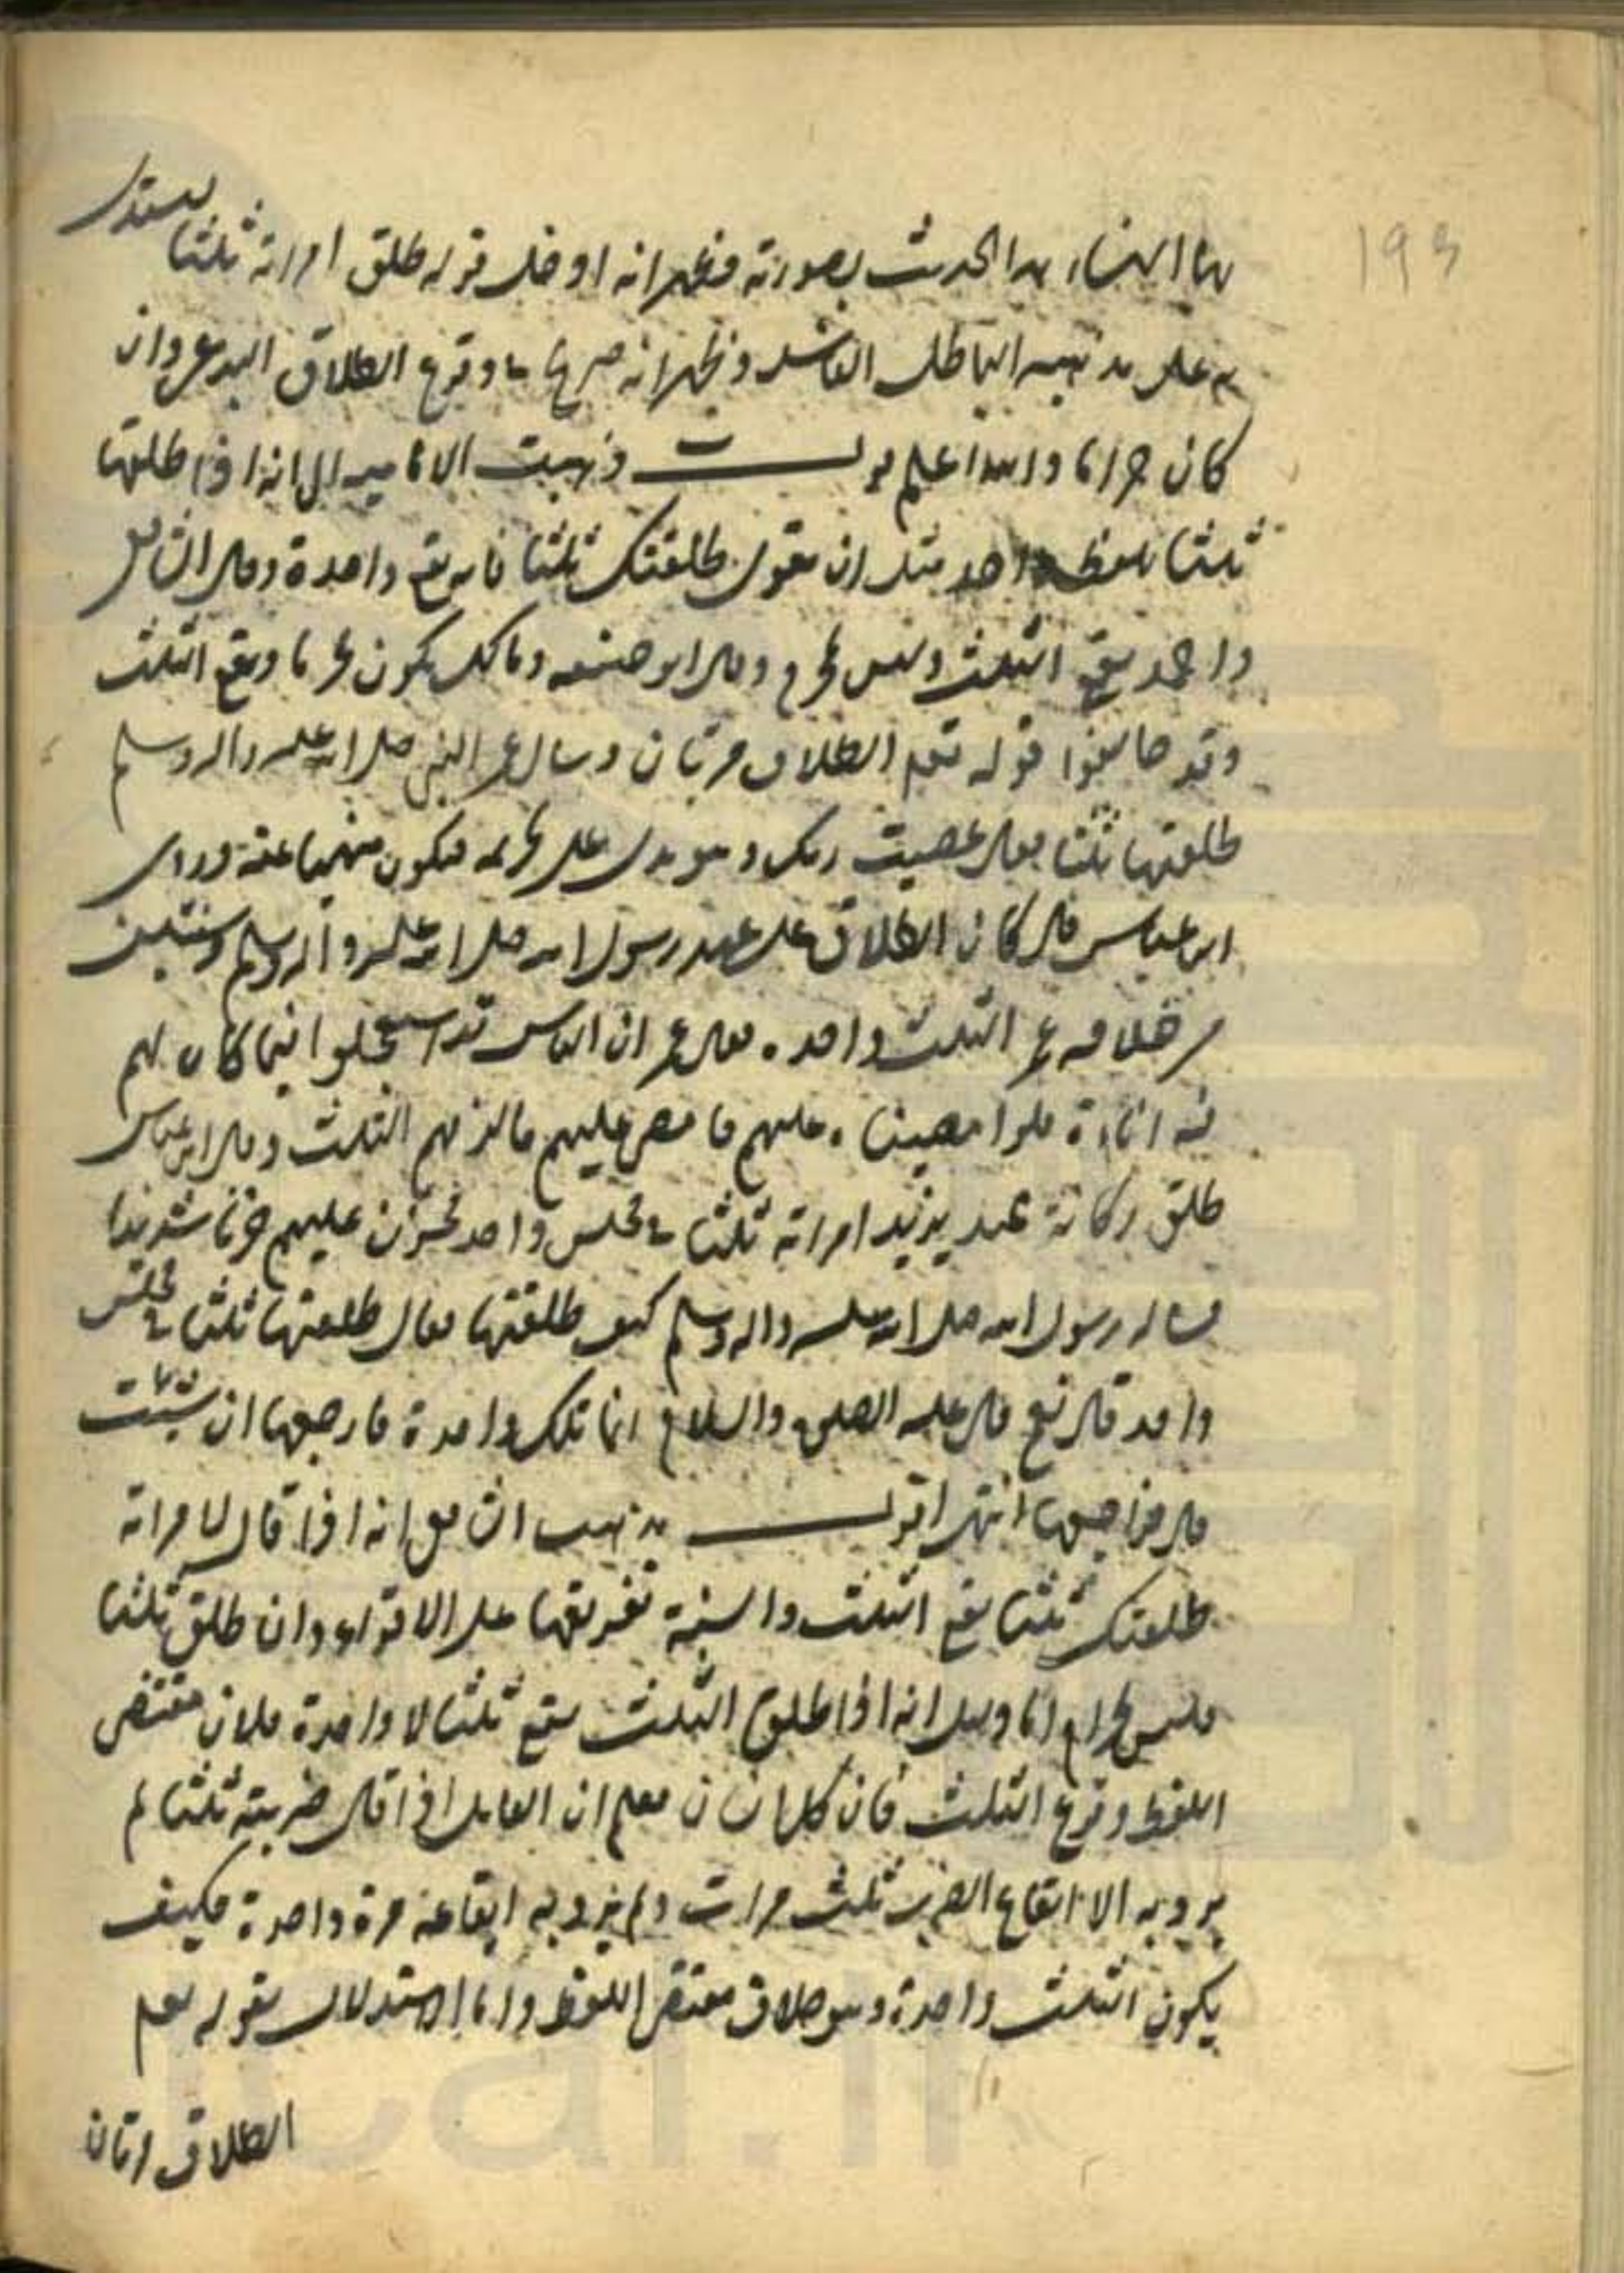 193
لها النساء هذا الحدث بصورته فظهر انه ادخل قوله طلق امراته ثلثا ليستدل
به على مذهبه الباطل الفاسد وظهر انه صريح في وقوع الطلاق البدعي وان
كان حراما والله اعلم قولت ذهبت الامامية الى انه اذا طلقها
ثلثا بلفظ واحد مثل ان يقول طلقتك ثلثا فانه يقع واحدة وقال الشافعي
واحمد يقع الثلث وليس بمحرم وقال ابو حنيفة ومالك يكون محرما ويقع الثلث
وقد خالفوا قوله تعم الطلاق مرتان وسال عمر النبي صلى الله عليه واله وسلم
طلقتها ثلثا فقال عصيت ربك وهو يدل على تحريمه فيكون منهيا عنه وروى
ابن عباس قال كان الطلاق على عهد رسول الله صلى الله عليه واله وسلم وسنتين
من خلافة عمر الثلث واحده فقال عمر ان الناس قد استعجلوا فيما كان لهم
فيه اناءة فلوا مضيناه عليهم فامضى عليهم فالزمهم الثلث وقال ابن عباس
طلق ركانة عبد يزيد امراته ثلثا في مجلس واحد فحزن عليهم حزنا شديدا
فساله رسول الله صلى الله عليه واله وسلم كيف طلقتها فقال طلقتها ثلثا في مجلس
واحد قال نعم قال عليه الصلوة والسلام انما تلك واحدة فارجعها ان شئت
قال فراجعها انتهى اقول مذهب الشافعي انه اذا قال لامراته
طلقتك ثلثا يقع الثلث والسنة تفريقها على الاقراء وان طلق ثلثا
فليس بحرام اما دليل انه اذا طلق الثلث يقع ثلثا لا واحدة فلان مقتضى
اللفظ وقوع الثلث فان كل انسان يعلم ان القائل اذا قال ضربته ثلثا لم
يرد به الا ايقاع الضرب ثلث مرات ولم يرد به ايقاعه مرة واحدة فكيف
يكون الثلث واحدة وهو خلاف مقتضى اللفظ واما الاستدلال بقوله تعم
الطلاق مرتان